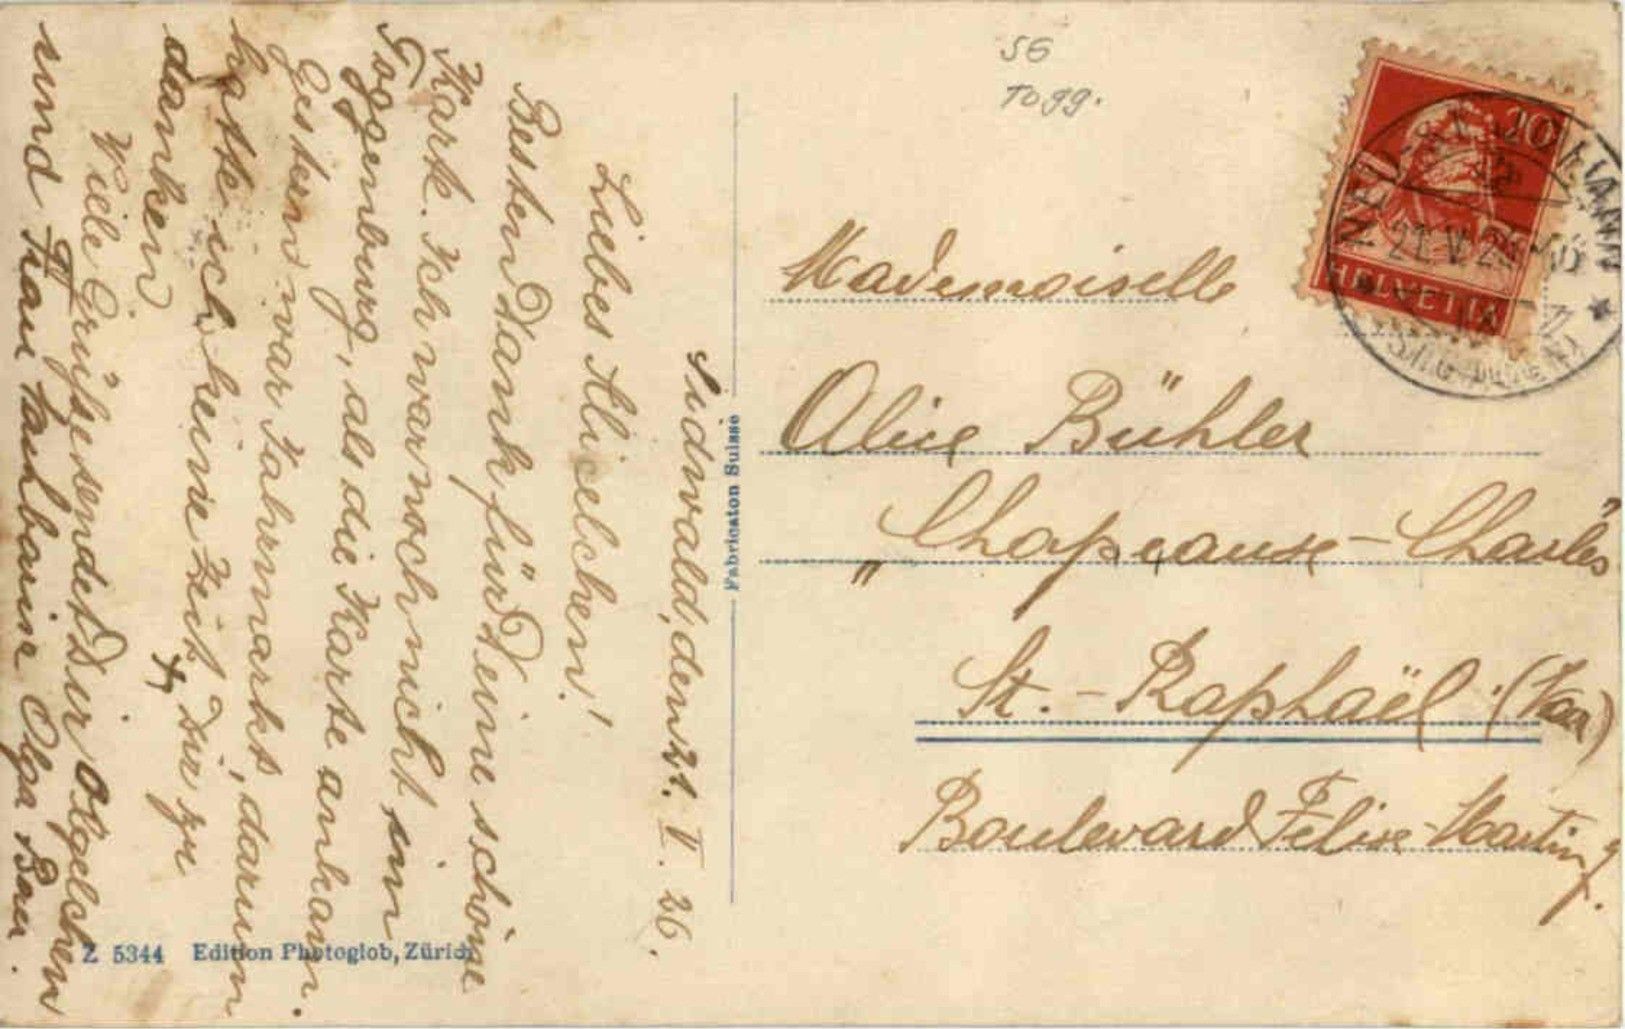 Sidwald, den 21. V. 26.
Liebes Alicelchen!
Besten Dank für Deine schöne
Karte. Ich war noch nicht im
Toggenburg, als die Karte ankam.
Gestern war Jahrmarkt, darum
hatte ich keine Zeit, Dir zu
danken
Viele Grüsse sendet Dir Olgelchen
und Frau Olga
SG
Togg.
20
HELVETIA
21. V. 26
Mademoiselle
Alice Bühler
"Chapeause-Charles"
St.-Raphaël (Var)
Boulevard Félix-Martin, 9.
Fabrication Suisse
Z 5344 Edition Photoglob, Zürich